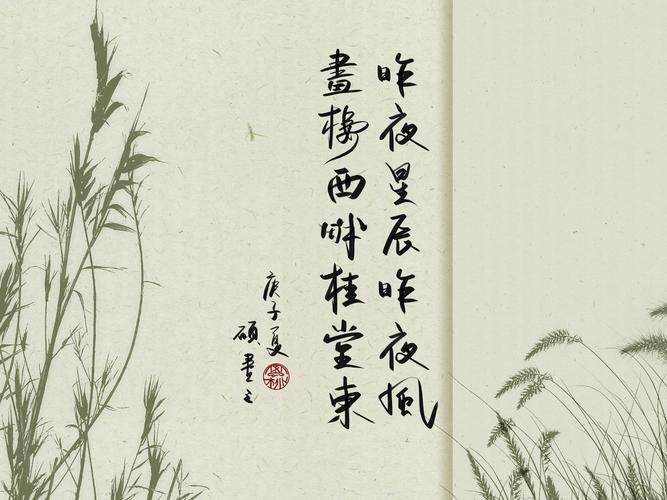 昨夜星辰昨夜風
畫樓西畔桂堂東
庚子夏
碩書之